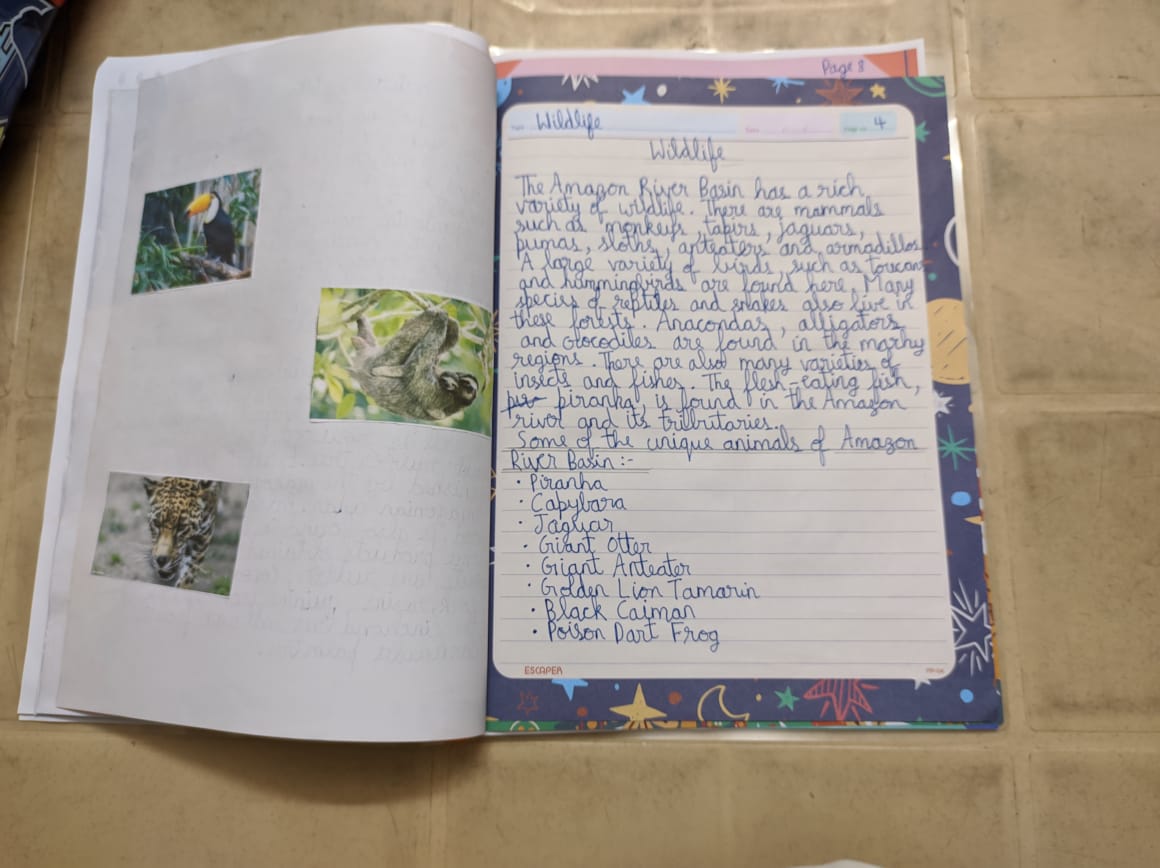 Page 8
Wildlife
4
Wildlife
The Amazon River Basin has a rich
variety of wildlife. There are mammals
such as monkeys, tapirs, jaguars,
pumas, sloths, anteaters and armadillos.
A large variety of birds, such as toucans
and hummingbirds are found here. Many
species of reptiles and snakes also live in
these forests. Anacondas, alligators
and crocodiles are found in the marhy
regions. There are also many varieties of
insects and fishes. The flesh-eating fish,
piranha, is found in the Amazon
river and its tributaries.
Some of the unique animals of Amazon
River Basin :-
• Piranha
• Capybara
• Jaguar
• Giant Otter
• Giant Anteater
• Golden Lion Tamarin
• Black Caiman
• Poison Dart Frog
ESCAPER